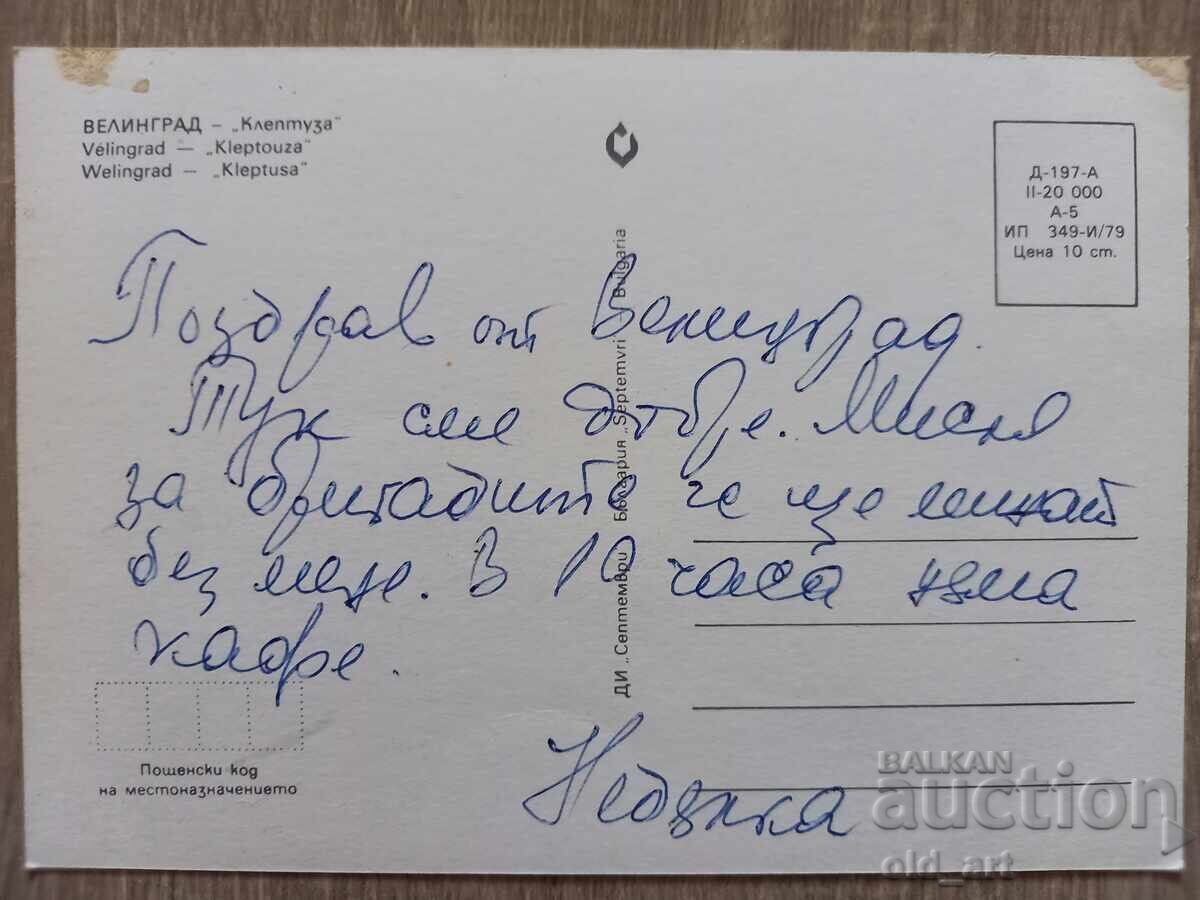 ВЕЛИНГРАД – „Клептуза"
Vélingrad — „Kleptouza"
Welingrad — „Kleptusa"
Д-197-А
II-20 000
А-5
ИП 349-И/79
Цена 10 ст.
Поздрав от Велинград.
Тук сме добре. Мисля
за бригадите че ще
без мене. В 10 часа няма
кафе.
Недялка
ДИ „Септември" България „Septemvri" Bulgaria
Пощенски код
на местоназначението
BALKAN
auction
old_art